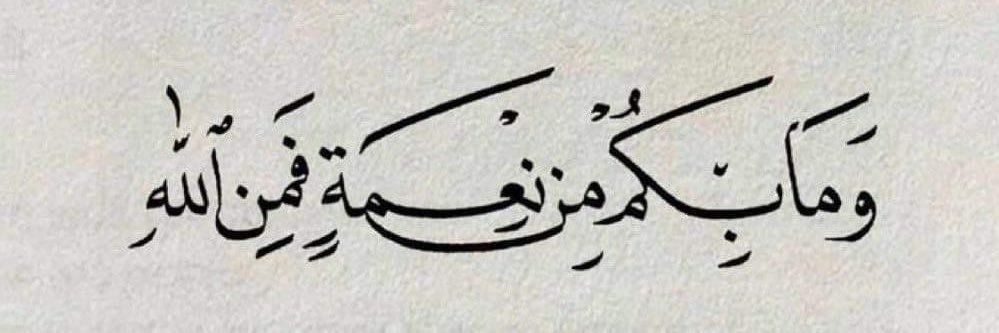 وَمَا بِكُمْ مِنْ نِعْمَةٍ فَمِنَ اللهِ